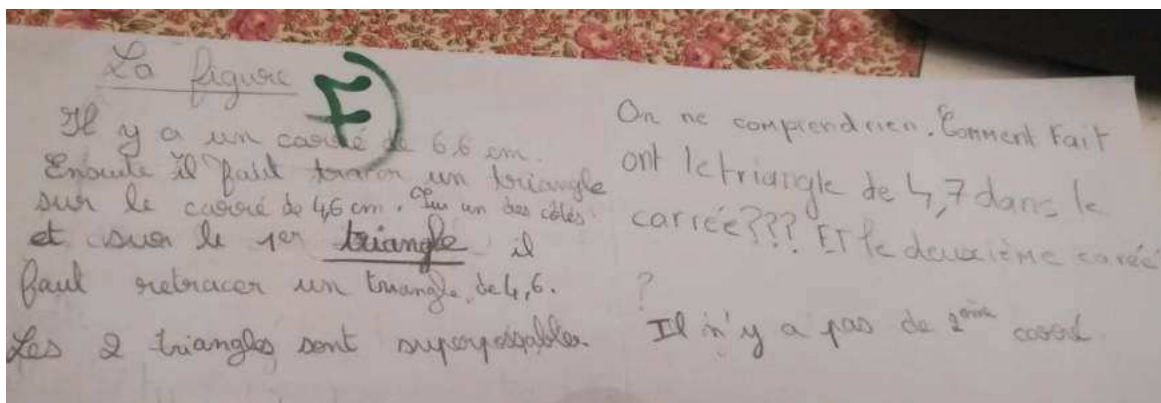 La figure
7
Il y a un carré de 6,6 cm.
Ensuite il faut tracer un triangle
sur le carré de 4,6 cm. Sur un des côtés
et sur le 1er triangle il
faut retracer un triangle de 4,6.
Les 2 triangles sont superposables.
On ne comprend rien. Comment Fait
ont le triangle de 4,7 dans le
carrée??? Et le deuxième carée
?
Il n'y a pas de 2ème carré